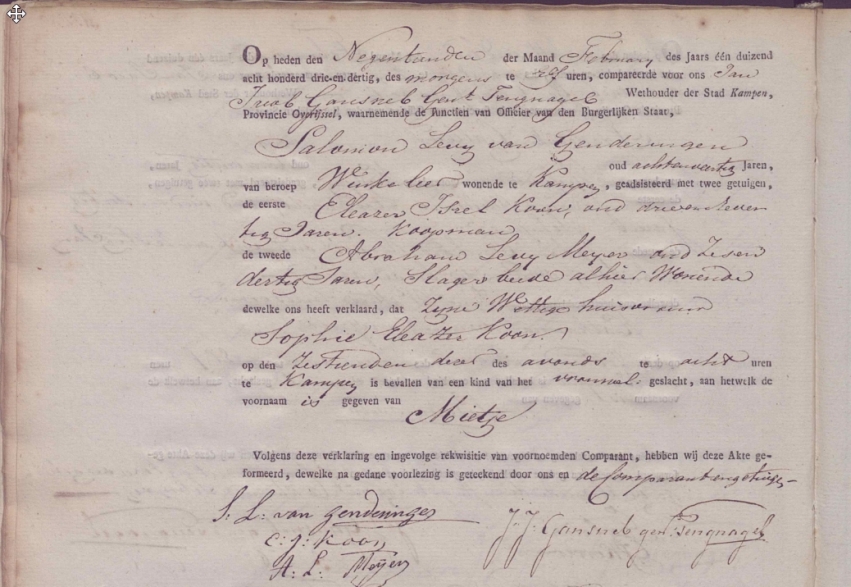 Op heden den Negentienden der Maand February des Jaars één duizend
acht honderd drie-en-dertig, des morgens te elf uren, compareerde voor ons Jan
Jacob Gansneb Gent Tengnagel Wethouder der Stad Kampen,
Provincie Overijssel, waarnemende de functien van Officier van den Burgerlijken Staat,
Salomon Levy van Genderingen
oud achtenveertig Jaren,
van beroep Winkelier wonende te Kampen, geadsisteerd met twee getuigen,
de eerste Eleazer Isrel Koon, oud drieenseven
tig Jaren. Koopman
de tweede Abraham Levy Meyer oud Zesen
dertig Jaren, Slager beide alhier Wonende
dewelke ons heeft verklaard, dat Zyne Wettige huisvrouw
Sophie Eleazer Koon
op den Zestienden deer des avonds te acht uren
te Kampen is bevallen van een kind van het vrouwel: geslacht, aan hetwelk de
voornaam is gegeven van
Mietje
Volgens deze verklaring en ingevolge rekwisitie van voornoemden Comparant, hebben wij deze Akte ge-
formeerd, dewelke na gedane voorlezing is geteekend door ons en de Comparant en getuigen
S: L: van genderingen
J: J: Gansneb gent: Tengnagel
Koon
A: L: Meyer